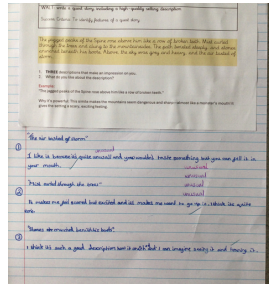 WALT: write a quest story, including a high-quality setting description
Success Criteria: To identify features of a quest story
The jagged peaks of the Spine rose above him like a row of broken teeth. Mist curled
through the trees and clung to the mountainside. The path sloped steeply, and stones
crunched beneath his boots. Above, the sky was grey and heavy, and the air tasted of
storm.
1. THREE descriptions that make an impression on you.
2. What do you like about the description?
Example:
"The jagged peaks of the Spine rose above him like a row of broken teeth."
Why it's powerful: This simile makes the mountains seem dangerous and sharp – almost like a monster's mouth. It
gives the setting a scary, exciting feeling.
"the air tasted of storm"
①
unusual
I like it because it's quite unusall and you wouldn't taste something but you can fell it in
your mouth.
unusual
unusual
"Mist curled through the trees"
unusual
②
unusual
It makes me feel scared but excited and it makes me want to go up it. I think its quite
"Stones crunched beneath his boots"
③
I think its such a good description bec it and I can imagine seeing it and hearing it.